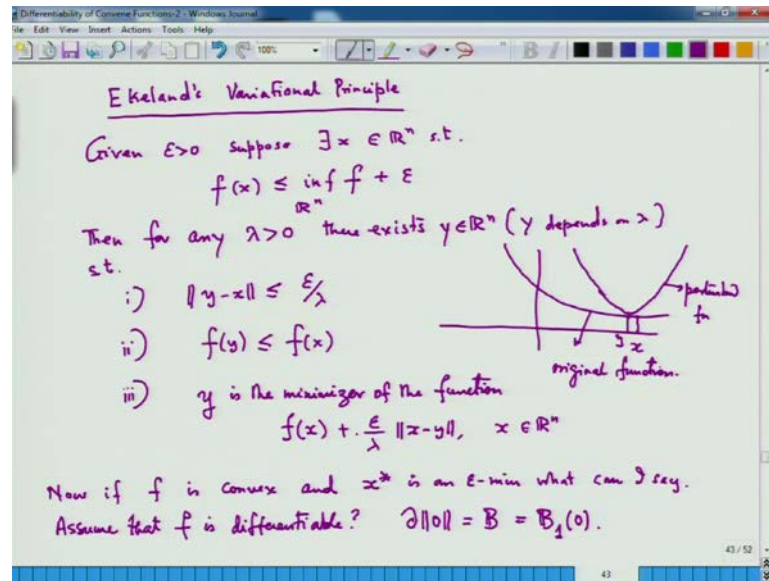 Differentiability of Convene Functions-2 - Windows Journal
File Edit View Insert Actions Tools Help
100%
Ekeland's Variational Principle
Given ε>0 suppose ∃ x ∈ ℝⁿ s.t.
f(x) ≤ inf f + ε
ℝⁿ
Then for any λ>0 there exists y∈ℝⁿ (y depends on λ)
s.t.
i) ‖y-x‖ ≤ ε/λ
ii) f(y) ≤ f(x)
iii) y is the minimizer of the function
f(x) + ε/λ ‖x-y‖, x ∈ ℝⁿ
perturbed
fn
y x
original function.
Now if f is convex and x* is an ε-min what can I say.
Assume that f is differentiable? ∂‖0‖ = B = B₁(0).
43/52
43